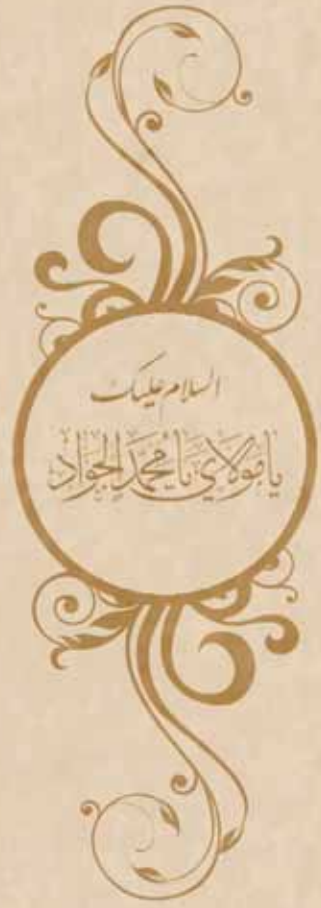 السلام علیک
يا مولاي يا محمد الجواد